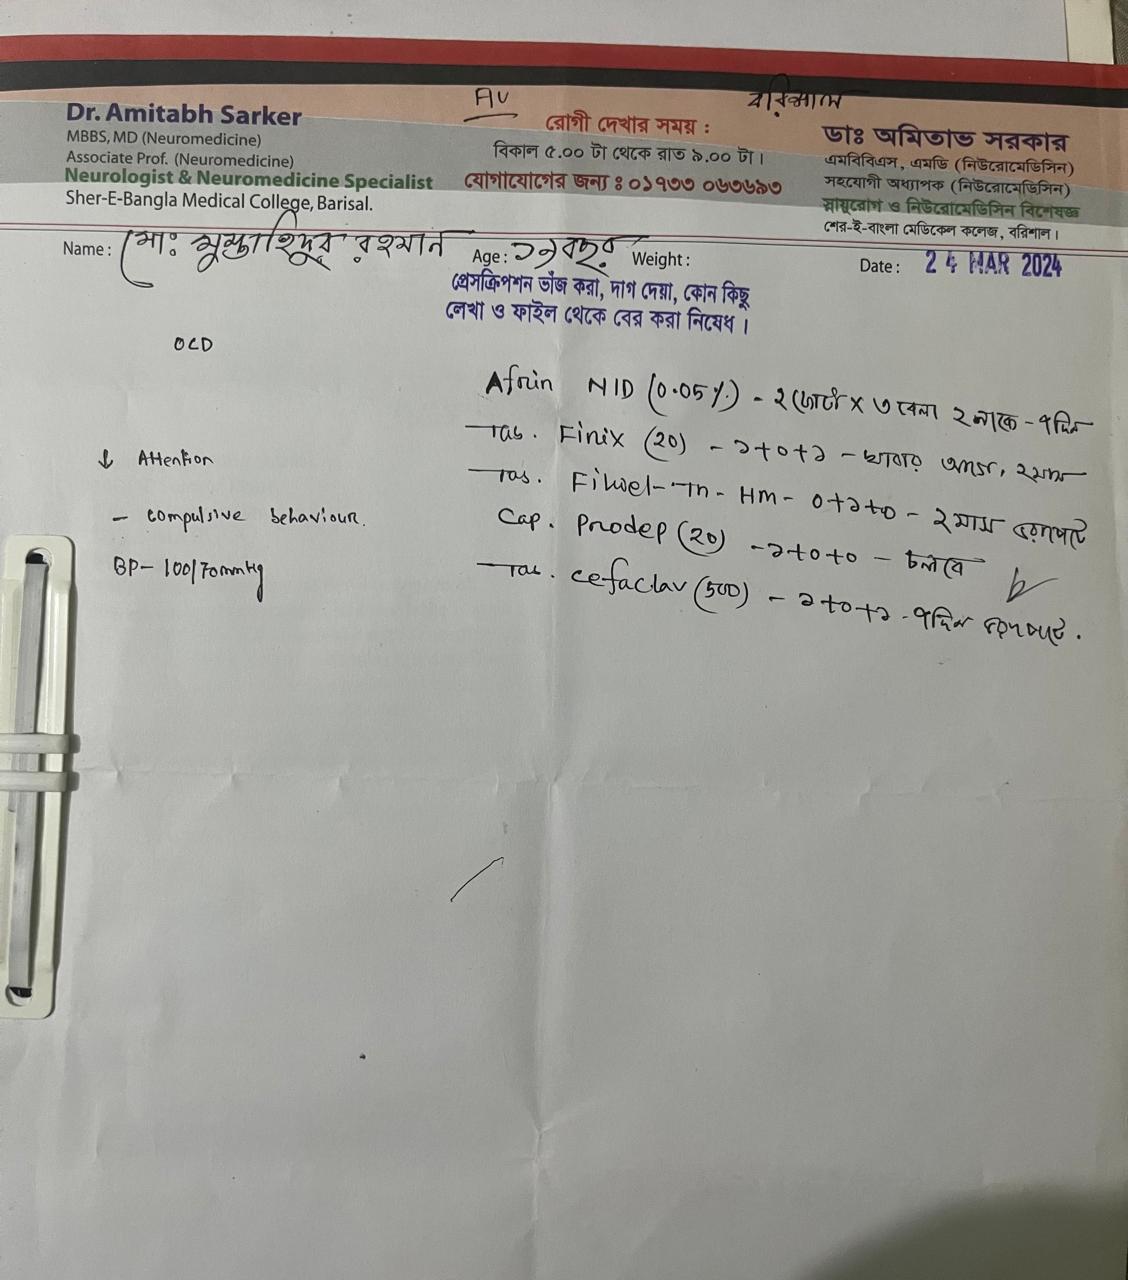 AV
বরিশাল
Dr. Amitabh Sarker
MBBS, MD (Neuromedicine)
Associate Prof. (Neuromedicine)
Neurologist & Neuromedicine Specialist
Sher-E-Bangla Medical College, Barisal.
রোগী দেখার সময় :
বিকাল ৫.০০ টা থেকে রাত ৯.০০ টা।
যোগাযোগের জন্য : ০১৭৩৩ ০৬৩৬৯৩
ডাঃ অমিতাভ সরকার
এমবিবিএস, এমডি (নিউরোমেডিসিন)
সহযোগী অধ্যাপক (নিউরোমেডিসিন)
স্নায়ুরোগ ও নিউরোমেডিসিন বিশেষজ্ঞ
শের-ই-বাংলা মেডিকেল কলেজ, বরিশাল।
Name : মোঃ মুস্তাহিদুর রহমান Age : ১৯ বছর Weight : Date : 24 MAR 2024
প্রেসক্রিপশন ভাঁজ করা, দাগ দেয়া, কোন কিছু
লেখা ও ফাইল থেকে বের করা নিষেধ।
OCD
↓ Attention
- compulsive behaviour.
BP- 100/70mmHg
Afrin N/D (0.05%) - ২ ফোটা x ৩ বেলা ২ নাকে - ৭ দিন
Tab. Finix (20) - ১+০+১ - খাবার আগে, ২ মাস
Tab. Filwel-Tn-HM- ০+১+০ - ২ মাস ভরাপেটে
Cap. Prodep (20) - ১+০+০ - চলবে
Tab. cefaclav (500) - ১+০+১ - ৭ দিন ভরাপেটে.